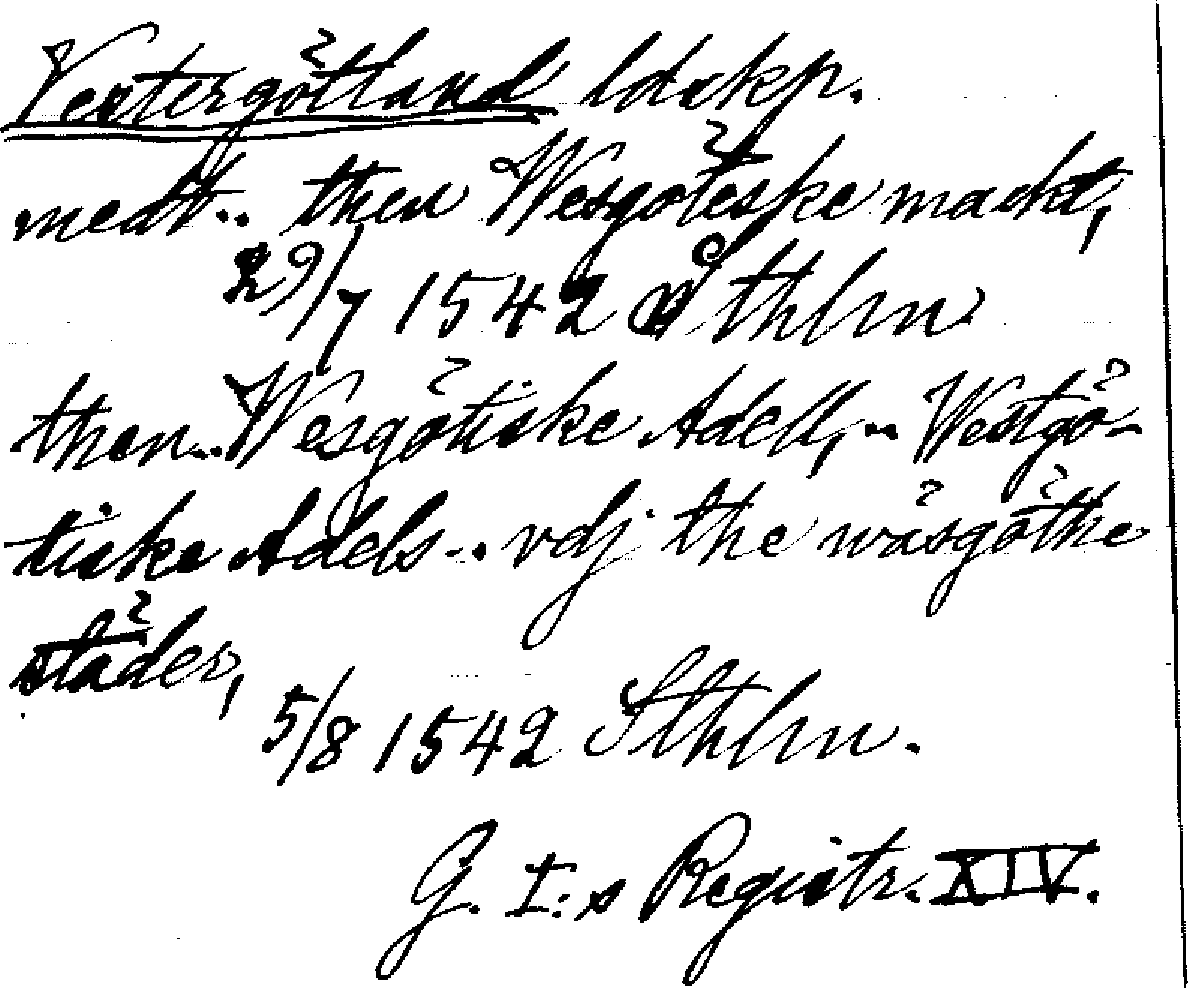 Vestergötland ldskp.
medt.. then Wesgöteske mackt,
29/7 1542 Sthlm
then.. Wesgötiske Adell,.. Westgö-
tiske Adels.. vdj the wäsgöthe
städer,
5/8 1542 Sthlm.
G. I:s Registr. XIV.